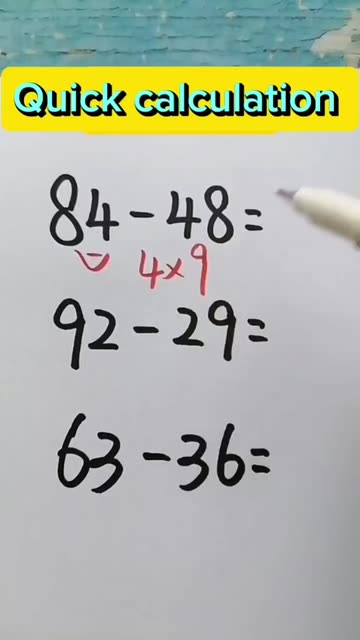 Quick calculation
84-48=
4×9
92-29=
63-36=